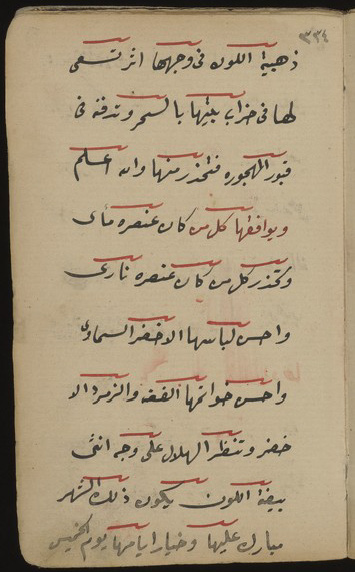 ٣٣٤
ذهبية اللون فى وجهها اثر تسعى
لها فى خراب بيتها بالسحر وتدفنه فى
قبور المهجوره فتحذر منها والله اعلم
ويوافقها كل من كان عنصره مائى
وتحذر كل من كان عنصره نارى
واحسن لباسها الاخضر السماوى
واحسن خواتمها الفضه والزمرد الا
خضر وتنظر الهلال على وجه انثى
بيضة اللون يكون ذلك الشهر
مبارك عليها وخيار ايامها يوم الخميس